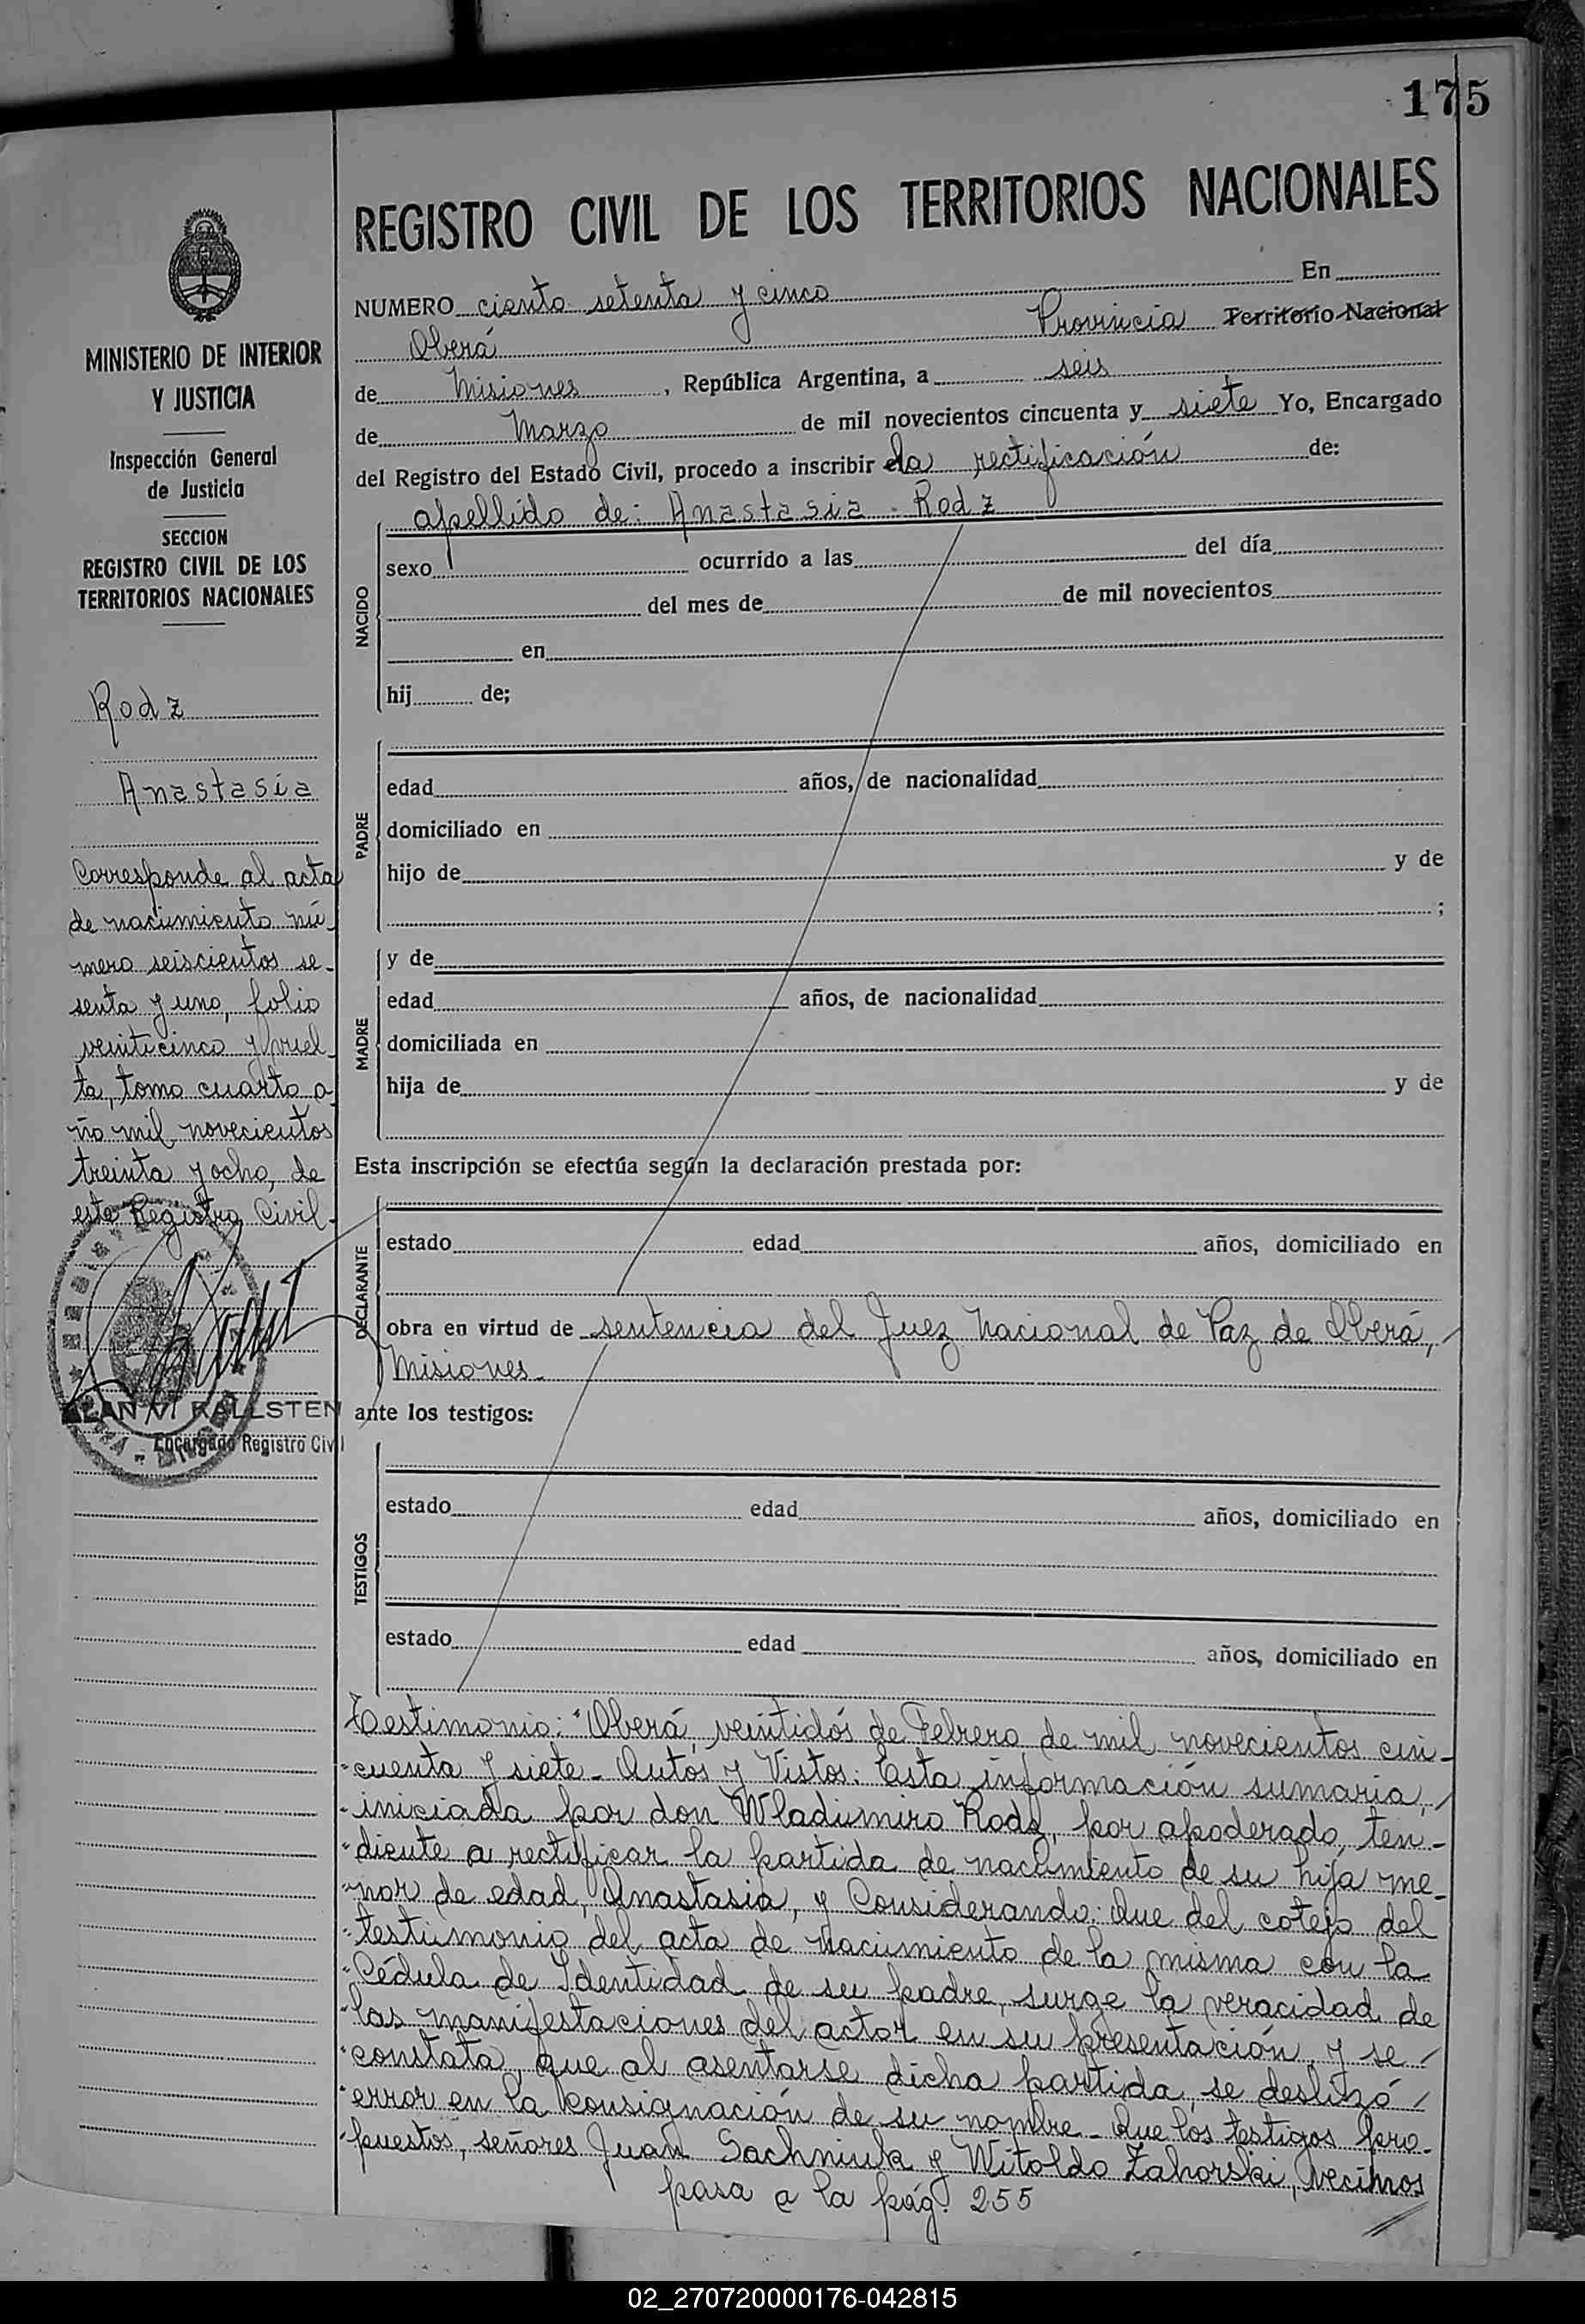 175
REGISTRO CIVIL DE LOS TERRITORIOS NACIONALES
NUMERO ciento setenta y cinco En
Oberá Provincia Territorio Nacional
de Misiones, República Argentina, a seis
de Marzo de mil novecientos cincuenta y siete Yo, Encargado
del Registro del Estado Civil, procedo a inscribir la rectificación de:
apellido de: Anastasia Rodz
MINISTERIO DE INTERIOR
Y JUSTICIA
Inspección General
de Justicia
SECCION
REGISTRO CIVIL DE LOS
TERRITORIOS NACIONALES
Rodz
Anastasia
Corresponde al acta
de nacimiento nú-
mero seiscientos se-
senta y uno, folio
veinticinco y vuel-
ta, tomo cuarto a
ño mil novecientos
treinta y ocho, de
este Registro Civil.
KALLSTEN
Encargado Registro Civil
NACIDO
sexo ocurrido a las del día
del mes de de mil novecientos
en
hij de;
PADRE
edad años, de nacionalidad
domiciliado en
hijo de y de
;
y de
MADRE
edad años, de nacionalidad
domiciliada en
hija de y de
Esta inscripción se efectúa según la declaración prestada por:
DECLARANTE
estado edad años, domiciliado en
obra en virtud de sentencia del Juez Nacional de Paz de Oberá,
Misiones.
ante los testigos:
TESTIGOS
estado edad años, domiciliado en
estado edad años, domiciliado en
Testimonio: "Oberá, veintidós de Febrero de mil novecientos cin-
"cuenta y siete - Autos y Vistos: Esta información sumaria,
"iniciada por don Wladimiro Rodz, por apoderado, ten-
"diente a rectificar la partida de nacimiento de su hija me-
"nor de edad, Anastasia, y Considerando: Que del cotejo del
"testimonio del acta de nacimiento de la misma con la
"Cédula de Identidad de su padre, surge la veracidad de
"las manifestaciones del actor en su presentación, y se
"constata, que al asentarse dicha partida, se deslizó
"error en la consignación de su nombre - Que los testigos pro-
"puestos, señores Juan Sachniuk y Witoldo Zahorski, vecinos
pasa a la pág. 255
02_270720000176-042815